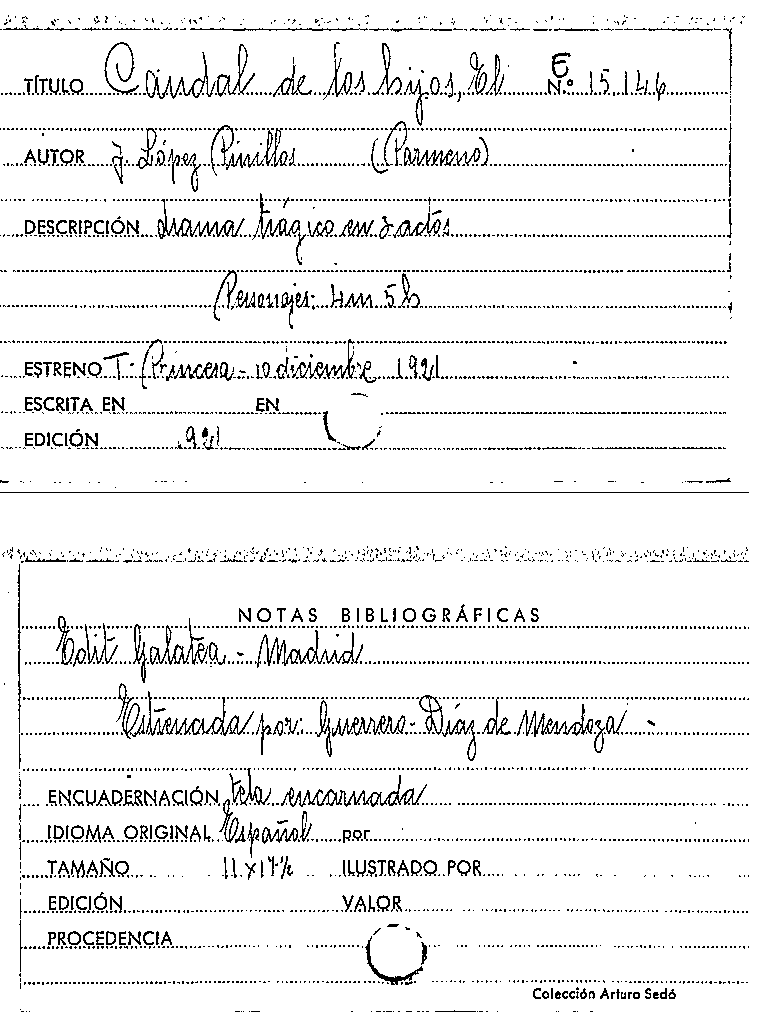 TÍTULO Caudal de los hijos, El E N.º 15.146
AUTOR J. López Pinillos (Parmeno)
DESCRIPCIÓN drama trágico en 3 actos
Personajes: 4m 5h
ESTRENO T. Princesa - 10 diciembre 1921
ESCRITA EN EN
EDICIÓN 1921
NOTAS BIBLIOGRÁFICAS
Edit Galatea - Madrid
Estrenada por: Guerrero - Díaz de Mendoza -
ENCUADERNACIÓN tela encarnada
IDIOMA ORIGINAL Español por
TAMAÑO 11 x 17 ½ ILUSTRADO POR
EDICIÓN VALOR
PROCEDENCIA
Colección Arturo Sedó